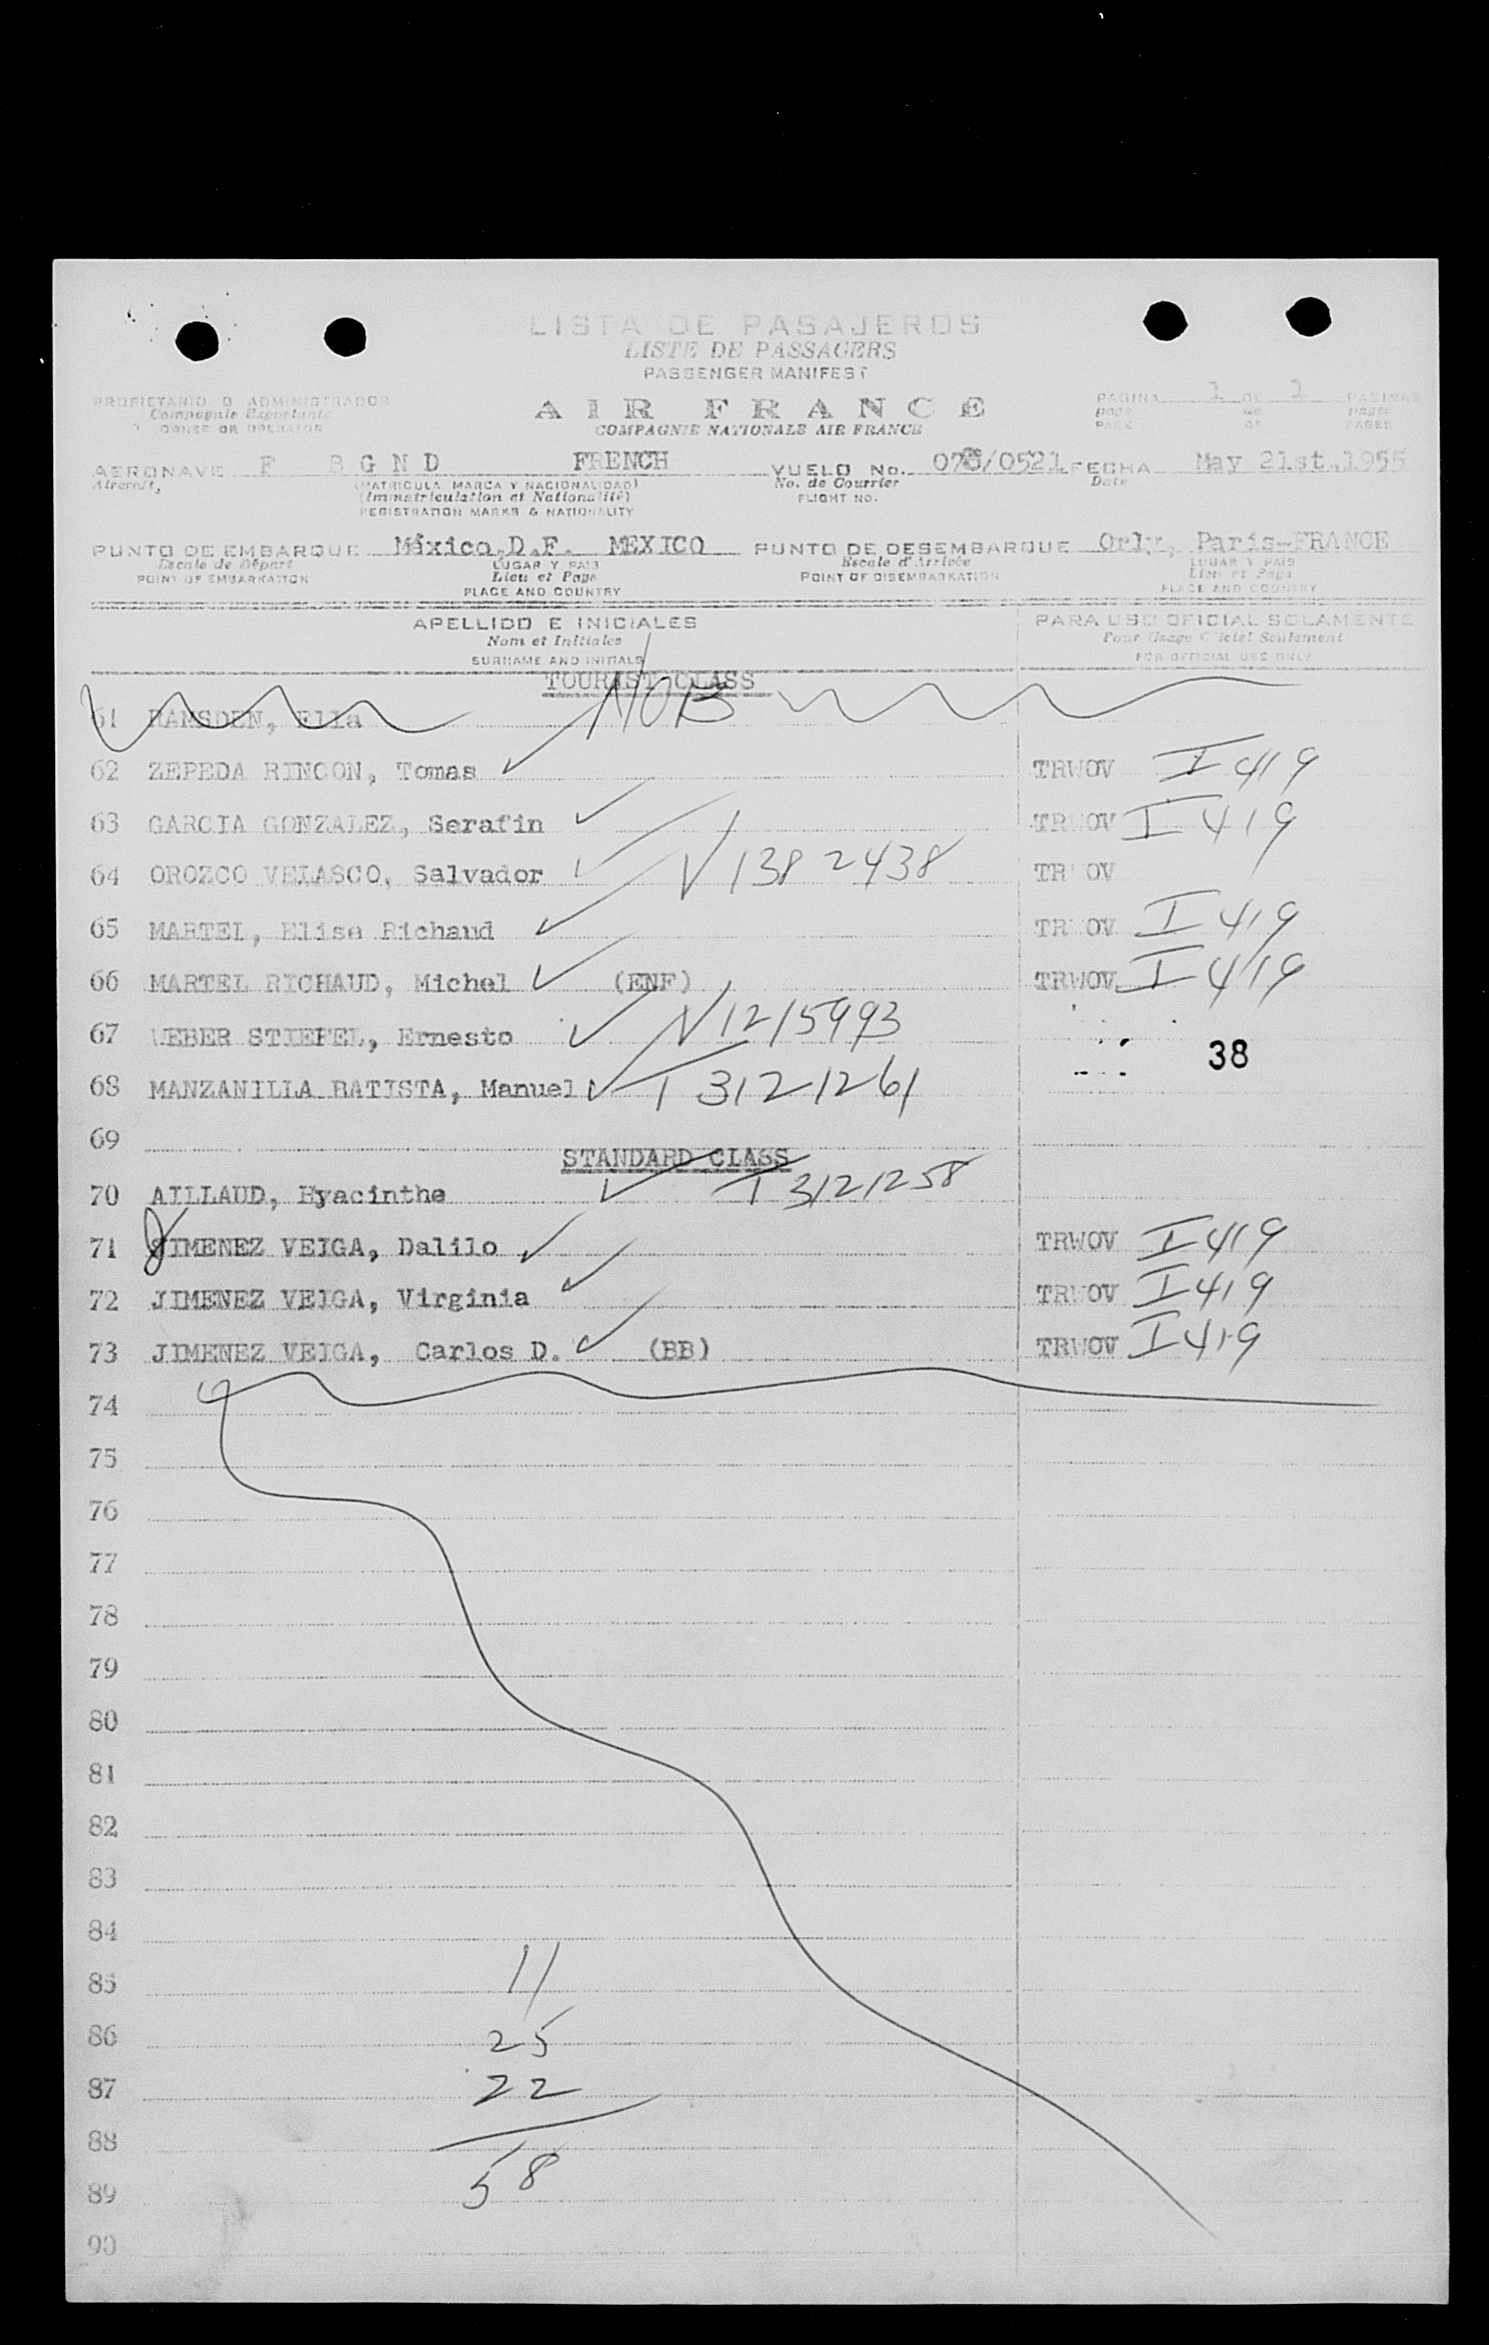 LISTA DE PASAJEROS
LISTE DE PASSAGERS
PASSENGER MANIFEST
PROPIETARIO O ADMINISTRADOR
AIR FRANCE
PAGINA 1 DE 1 PAGINAS
Compagnie Exportante
COMPAGNIE NATIONALE AIR FRANCE
OWNER OR OPERATOR
PAGE OF PAGES
AERONAVE F BGND FRENCH VUELO No. /0521 FECHA May 21st.1955
Aircraft, (MATRICULA, MARCA Y NACIONALIDAD) No. de Courrier Date
(Immatriculation et Nationalité) FLIGHT NO.
REGISTRATION MARKS & NATIONALITY
PUNTO DE EMBARQUE México,D.F. MEXICO PUNTO DE DESEMBARQUE Orly, Paris-FRANCE
Escale de Départ LUGAR Y PAIS Escale d'Arrivée LUGAR Y PAIS
POINT OF EMBARKATION Lieu et Pays POINT OF DISEMBARKATION Lieu et Pays
PLACE AND COUNTRY PLACE AND COUNTRY
APELLIDO E INICIALES PARA USO OFICIAL SOLAMENTE
Nom et Initiales Pour Usage Officiel Seulement
SURNAME AND INITIALS FOR OFFICIAL USE ONLY
TOURIST CLASS
61 RAMSDEN, Ella NOB
62 ZEPEDA RINCON, Tomas TRWOV I 419
63 GARCIA GONZALEZ, Serafin TRWOV I 419
64 OROZCO VELASCO, Salvador V1382438 TRWOV
65 MARTEL, Elise Richaud TRWOV I 419
66 MARTEL RICHAUD, Michel (ENF) TRWOV I 419
67 WEBER STIEFEL, Ernesto V1215993
38
68 MANZANILLA BATISTA, Manuel T 3121261
69
STANDARD CLASS
70 AILLAUD, Hyacinthe T 3121258
71 JIMENEZ VEIGA, Dalilo TRWOV I 419
72 JIMENEZ VEIGA, Virginia TRWOV I 419
73 JIMENEZ VEIGA, Carlos D. (BB) TRWOV I 419
74
75
76
77
78
79
80
81
82
83
84
11
85
86 25
87 22
88
58
89
90